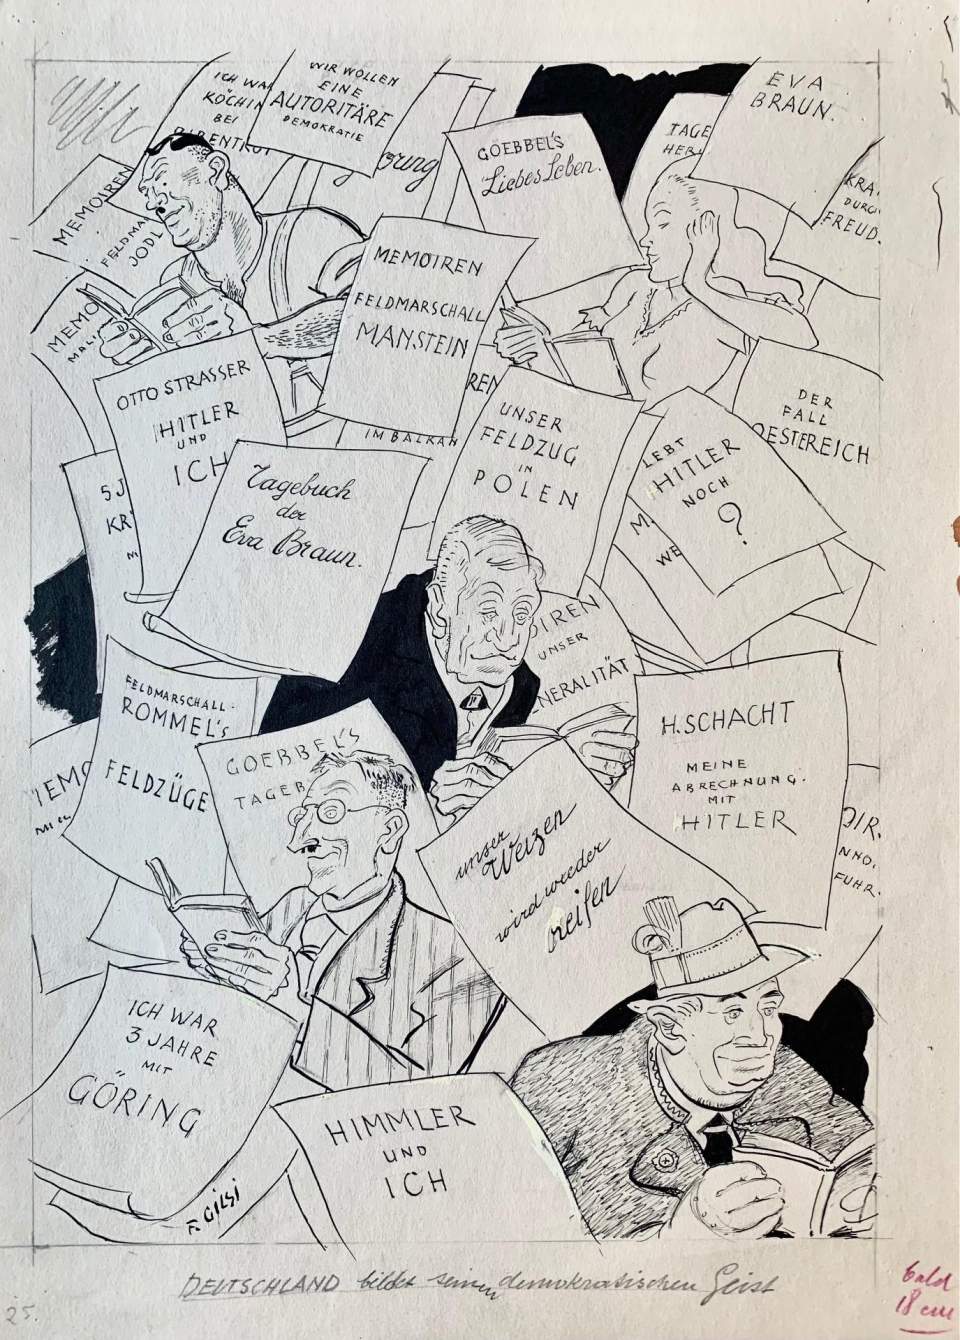 ICH WAR
KÖCHIN
BEI
WIR WOLLEN
EINE
AUTORITÄRE
DEMOKRATIE
GOEBBEL'S
Liebesleben.
TAGE
HEB
EVA
BRAUN.
KRA.
DURCH
FREUD.
MEMOIREN
FELDMA
JODL
MEMO
MEMOIREN
FELDMARSCHALL
MANSTEIN
OTTO STRASSER
HITLER
UND
ICH
IM BALKAN
UNSER
FELDZUG
IN
POLEN
LEBT
HITLER
NOCH
?
DER
FALL
OESTERREICH
5 J
KR
Tagebuch
der
Eva Braun.
M.
WE
OIREN
UNSER
NERALITÄT
FELDMARSCHALL-
ROMMEL'S
FELDZÜGE
IEMO
GOEBBEL'S
TAGEB
H. SCHACHT
MEINE
ABRECHNUNG
MIT
HITLER
OIR.
NNO.
FUHR.
unser
Weizen
wird wieder
reifen
ICH WAR
3 JAHRE
MIT
GÖRING
HIMMLER
UND
ICH
F. GILSI
DEUTSCHLAND bildet seinen demokratischen Geist
25.
bald
18 cm